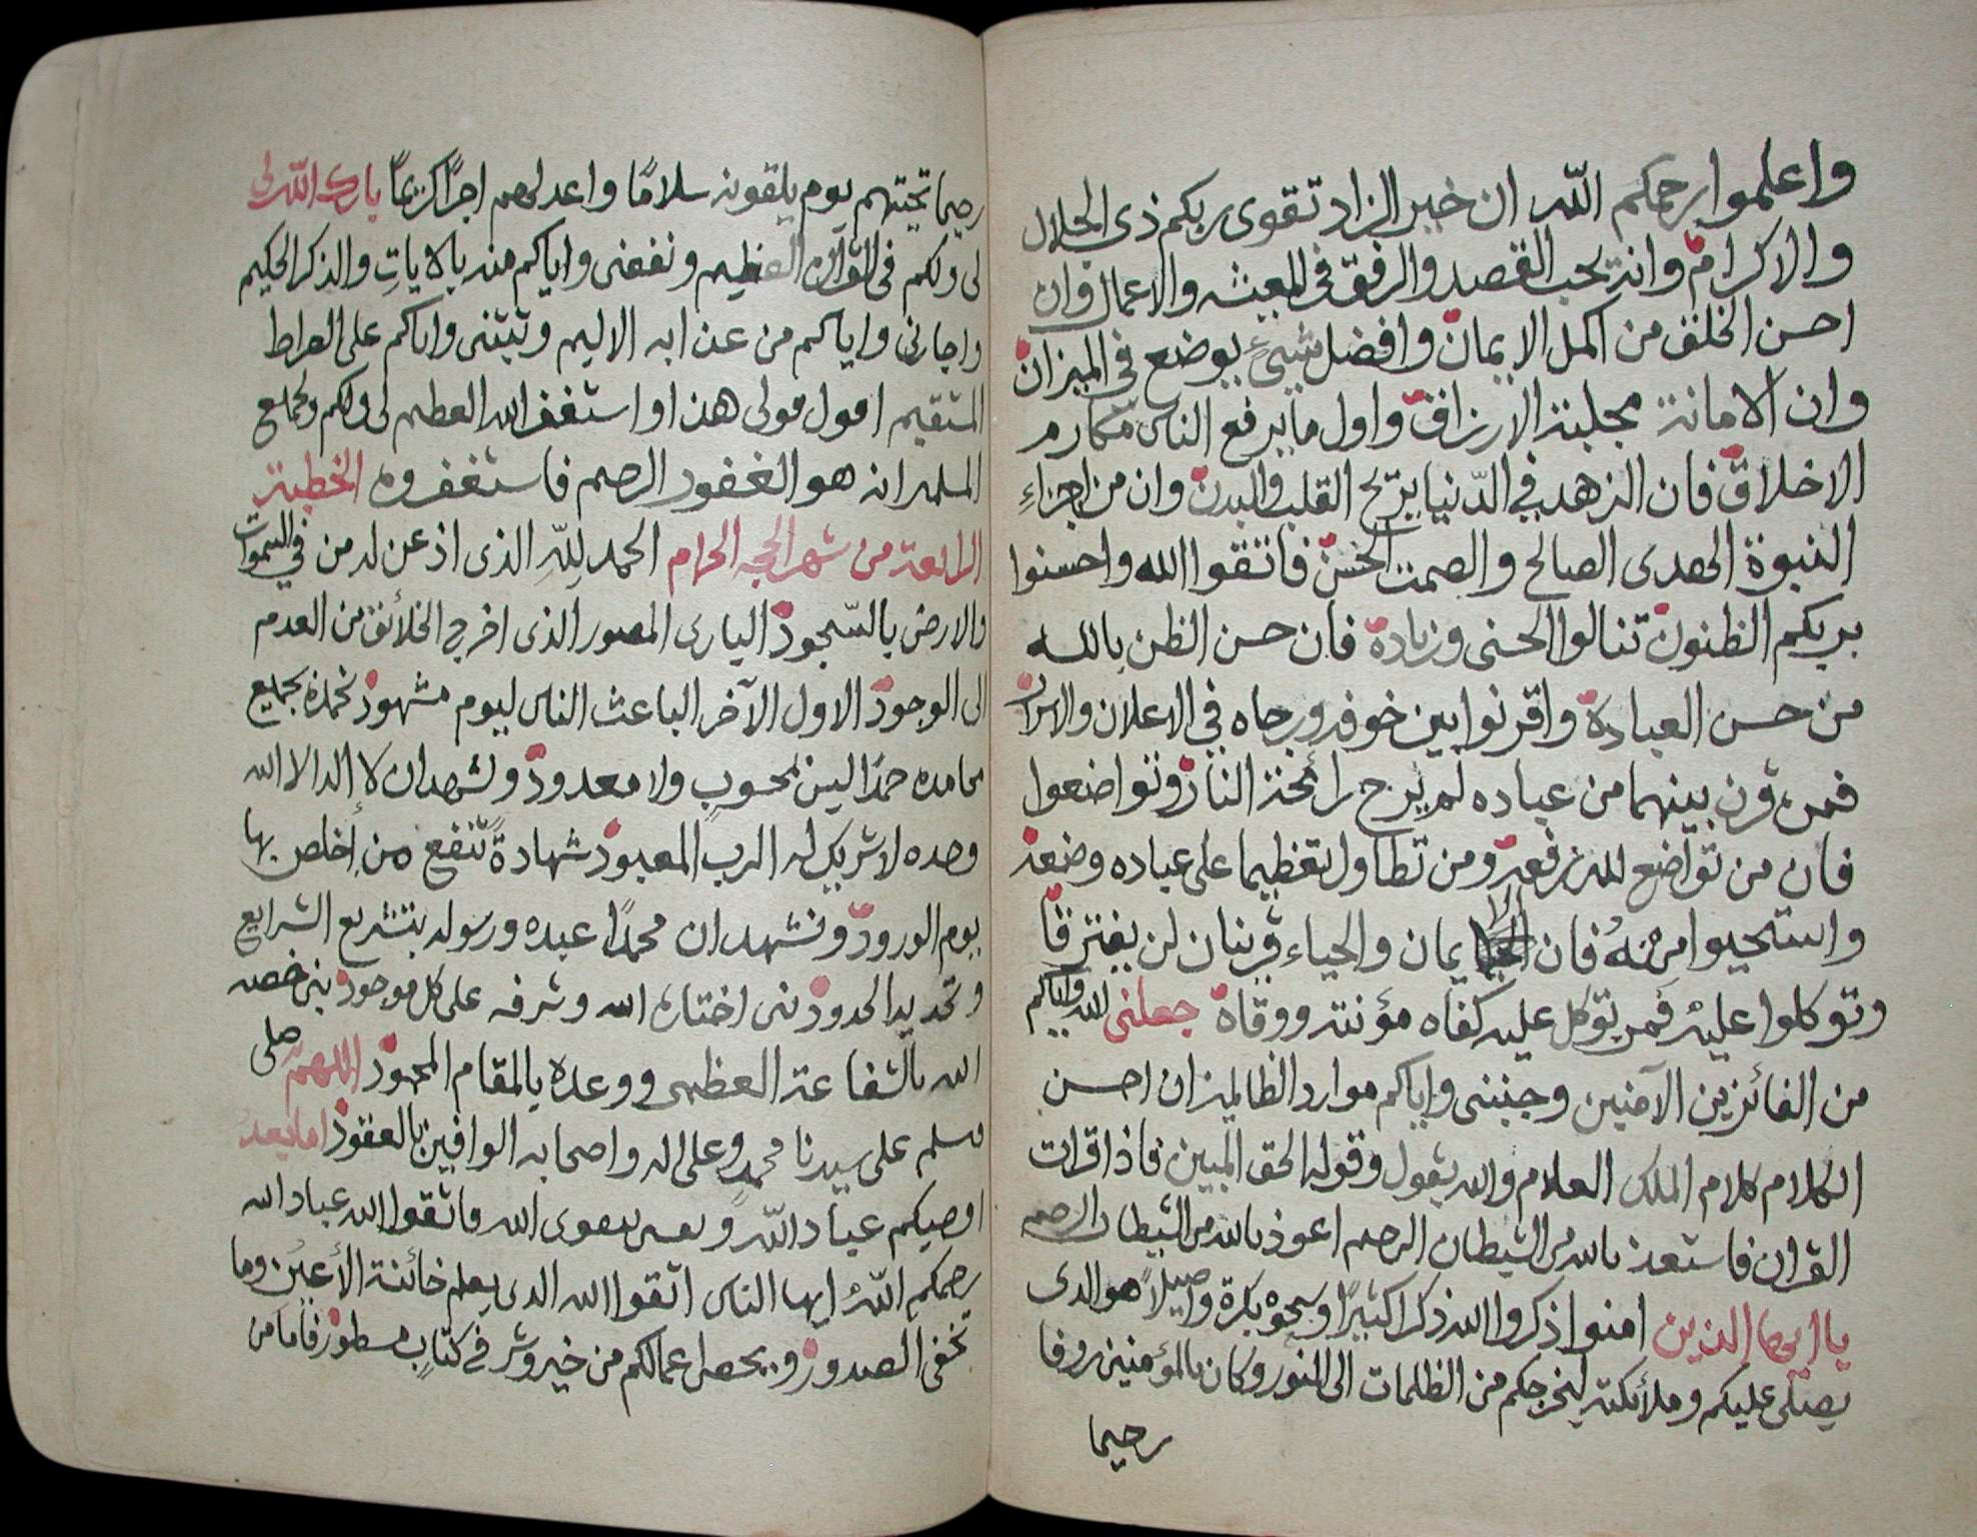 واعلموا رحمكم الله ان خير الزاد تقوى ربكم ذى الجلال
والاكرام وانه يحب القصد والرفق فى المعيشه والاعمال وان
احسن الخلق من اكمل الايمان وافضل شيئ يوضع فى الميزان
وان الامانة مجلبة الارزاق واول ما يرفع الناس مكارم
الاخلاق فان الزهد في الدّنيا يريح القلب والبدن وان من اجزاء
النبوة الهدى الصالح والصمت الحسن فاتقوا الله واحسنوا
بربكم الظنون تنالوا الحسنى وزيادة فان حسن الظن بالله
من حسن العبادة واقرنوا بين خوفه ورجاه في الاعلان والاسرار
فمن قرن بينهما من عباده لم يرح رائحة النار وتواضعوا
فان من تواضع لله رفعه ومن تطاول تعظيما على عباده وضعه
واستحيوا منه فان الايمان والحياء قرينان لن يفترقا
وتوكلوا عليه فمن توكل عليه كفاه مؤنته ووقاه جعلنى الله واياكم
من الفائزين الآمنين وجنبنى واياكم موارد الظالمين ان احسن
الكلام كلام الملك العلام والله يقول وقوله الحق المبين فاذا قرات
القران فاستعذ بالله من الشيطان الرجيم اعوذ بالله من الشيطان الرجيم
يا ايها الذين امنوا اذكروا الله ذكرا كثيرًا وسبحوه بكرة واصيلاً هو الذى
يصلى عليكم وملائكته ليخرجكم من الظلمات الى النور وكان بالمؤمنين روفا
رحيما
رحيما تحيتهم يوم يلقونه سلامًا واعد لهم اجرًا كريمًا بارك الله لى
لى ولكم فى القران العظيم ونفعنى واياكم منه بالاياتِ والذكر الحكيم
واجارنى واياكم من عذابه الاليم وثبتنى واياكم على الصراط
المستقيم اقول قولى هذا واستغفر الله العظيم لى ولكم ولجميع
المسلمين انه هو الغفور الرحيم فاستغفروه الخطبة
الرابعة من شهر الحجه الحرام الحمد لِلّهِ الذى اذعن له من في السموات
والارض بالسّجود البارى المصور الذى اخرج الخلائق من العدم
الى الوجود الاول الآخر الباعث الناس ليوم مشهود نحمده بجميع
محامده حمدًا ليس بمحسوبٍ ولا معدود ونشهد ان لا إله الا الله
وحده لا شريك له الرب المعبود شهادةً تنفع من اخلص بها
يوم الورود ونشهد ان محمدًا عبده ورسوله بتشريع الشرايع
وتحديد الحدود نبى اختاره الله وشرفه على كل موجود نبى خصه
الله بالشفاعة العظمى ووعده بالمقام المحمود اللهم صلى
وسلم على سيدنا محمدٍ وعلى اله واصحابه الوافين بالعقود اما بعد
اوصيكم عباد الله ونفسى بتقوى الله فاتقوا الله عباد الله
رحمكم اللهُ ايها الناس اتقوا الله الذى يعلم خائنة الأعين وما
تخفى الصدور ويحصى اعمالكم من خير وشر في كتابٍ مسطور فما من